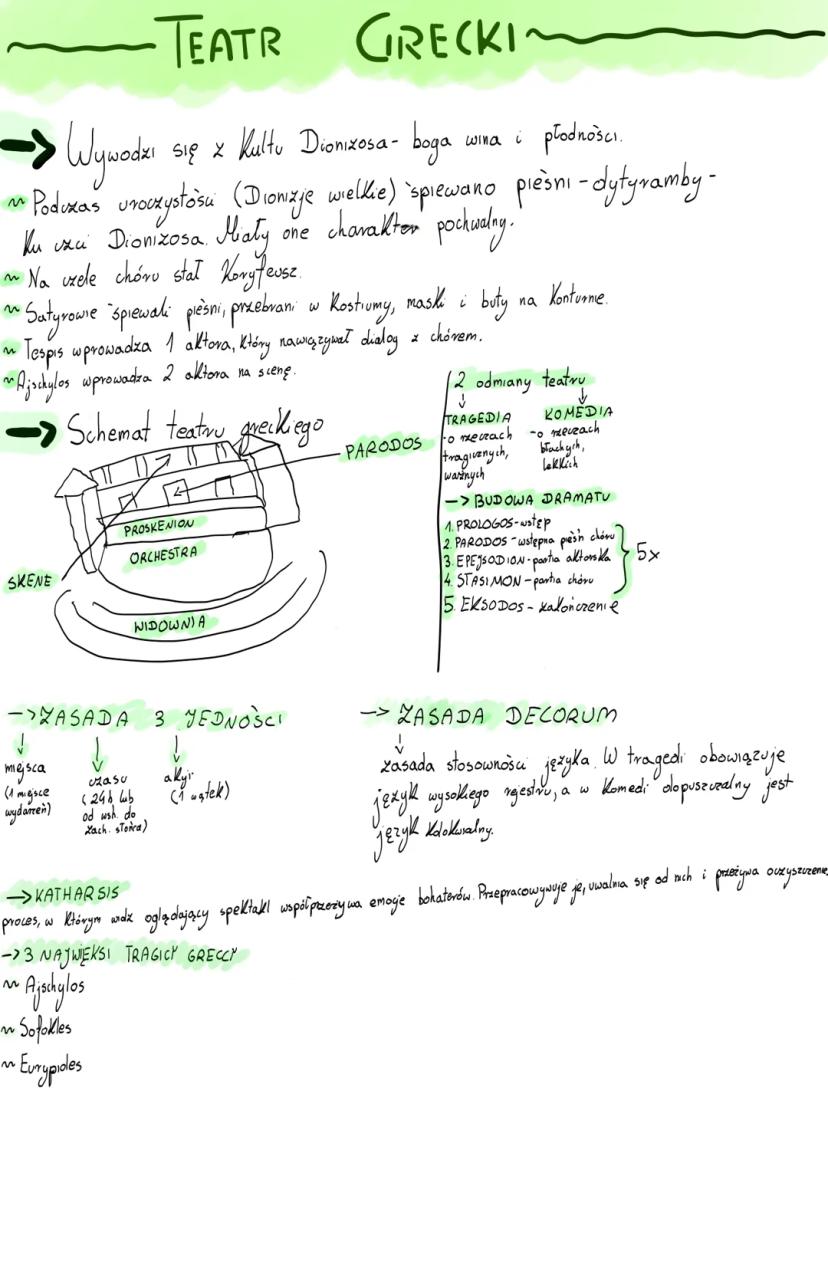 TEATR GRECKI
Wywodzi się z Kultu Dionizosa- boga wina i płodności.
Podczas uroczystości (Dionizje wielkie) śpiewano pieśni - dytyramby -
Ku czci Dionizosa. Miały one charakter pochwalny.
Na czele chóru stał Koryfeusz.
Satyrowie śpiewali pieśni, przebrani w Kostiumy, maski i buty na Koturnie.
Tespis wprowadza 1 aktora, który nawiązywał dialog z chórem.
Ajschylos wprowadza 2 aktora na scenę.
Schemat teatru greckiego
PARODOS
PROSKENION
ORCHESTRA
SKENE
WIDOWNIA
2 odmiany teatru
TRAGEDIA
-o rzeczach
tragicznych,
ważnych
KOMEDIA
-o rzeczach
błachych,
lekkich
-> BUDOWA DRAMATU
1. PROLOGOS-wstęp
2. PARODOS -wstępna pieśń chóru
3. EPEJSODION-partia aktorska
4. STASIMON - partia chóru
5x
5. EKSODOS - zakończenie
-> ZASADA 3 JEDNOŚCI
miejsca
(1 miejsce
wydarzeń)
czasu
(24h lub
od wsh. do
zach. słońca)
akcji
(1 wątek)
-> ZASADA DECORUM
zasada stosowności języka. W tragedi obowiązuje
język wysokiego rejestru, a w Komedi dopuszczalny jest
język Kolokwialny.
-> KATHARSIS
proces, w którym widz oglądający spektakl współprzeżywa emocje bohaterów. Przepracowywuje je, uwalnia się od nich i przeżywa oczyszczenie
-> 3 NAJWIĘKSI TRAGICY GRECCY
Ajschylos
Sofokles
Eurypides